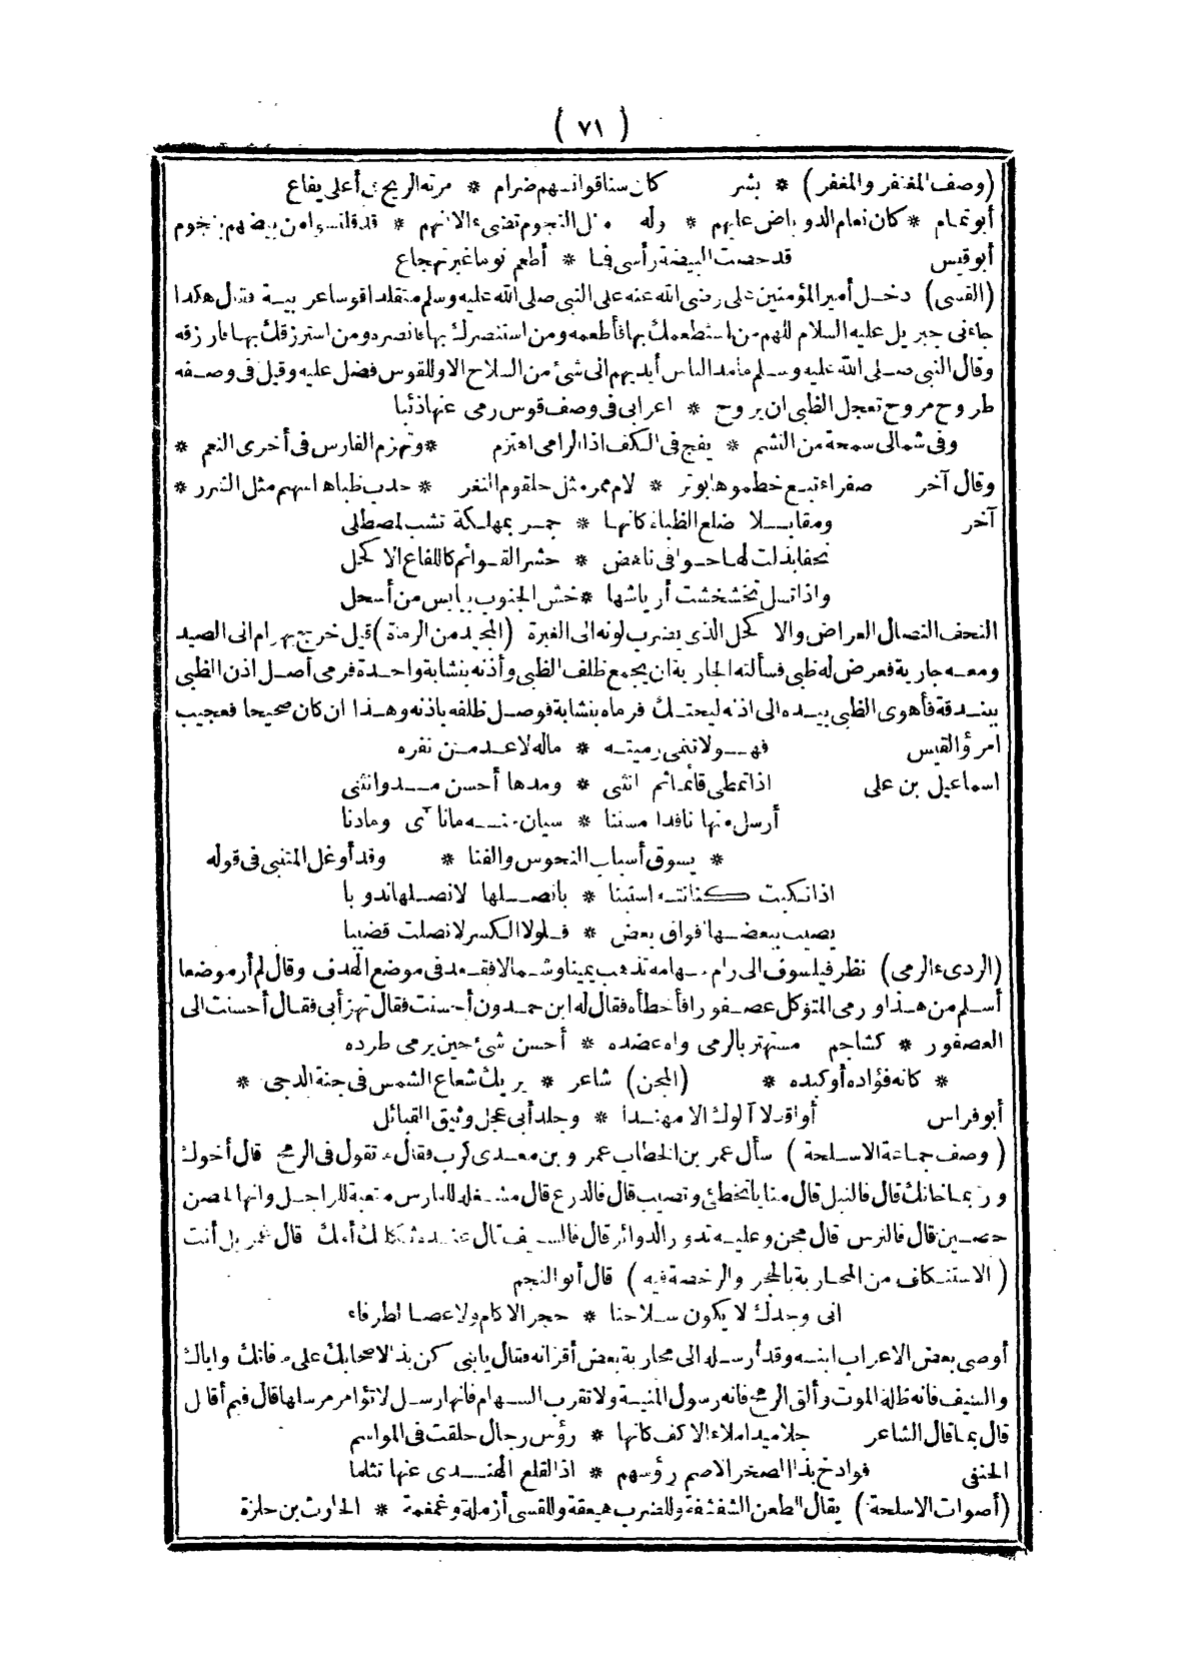 ( ٧١ )
(وصف المغتفر والمغفر) * بشر كان سنا قوانسهم ضرام * مرته الريح في أعلى يفاع
أبو تمام * كان نعام الدو باض عليهم * وله مثل النجوم تضىء الا انهم * قد قلنسوا من بيضهم بنجوم
أبو قيس قد حصت البيضة رأسى فما * أطعم نوما غير تهجاع
(القسى) دخل أمير المؤمنين على رضى الله عنه على النبى صلى الله عليه وسلم متقلدا قوسا عربية فقال هكذا
جاءنى جبريل عليه السلام اللهم من استطعمك بها فأطعمه ومن استنصرك بها فانصره ومن استرزقك بها فارزقه
وقال النبى صلى الله عليه وسلم ما مد الناس أيديهم الى شئ من السلاح الا وللقوس فضل عليه وقيل فى وصفه
طروح مروح تعجل الظبى ان يروح * اعرابى فى وصف قوس رمى عنها ذئبا
وفى شمالى سمحة من النشم * يفج فى الكف اذا الرامى اهتزم * وتهزم الفارس فى أخرى النعم *
وقال آخر صفراء تبع خطموها بوتر * لام ممر مثل حلقوم النغر * حدب ظباها اسهم مثل الشرر *
آخر ومقابلا ضلع الظباء كانها * جمر بمهلكة تشب لمصطلى
نجفا بذلت لها حوافى ناهض * حشر القوائم كاللفاع الاكحل
واذا تسل تخشخشت أرياشها * خش الجنوب بيابس من أسحل
النحف النصال العراض والاكحل الذى يضرب لونه الى الغبرة (المجيد من الرماة) قيل خرج بهرام الى الصيد
ومعه جارية فعرض له ظبى فسألته الجارية ان يجمع ظلف الظبى وأذنه بنشابة واحدة فرمى أصل اذن الظبى
ببندقة فأهوى الظبى بيده الى اذنه ليحتك فرماه بنشابة فوصل ظلفه باذنه وهذا ان كان صحيحا فعجيب
امرؤ القيس فهو لا تنمى رميته * ماله لا عد من نفره
اسماعيل بن على اذا تمطى قائما ثم انثنى * ومدها أحسن مد وانثنى
أرسل منها نافدا مسننا * سيان منه ما نأى وما دنا
* يسوق أسباب النحوس والفنا * وقد أوغل المتنبى فى قوله
اذا نكبت كنانته استبنا * بانصلها لانصلها ندوبا
يصيب ببعضها فواق بعض * فلولا الكسر لاتصلت قضيبا
(الردىء الرمى) نظر فيلسوف الى رام سهامه تذهب يمينا وشمالا فقعد فى موضع الهدف وقال لم أر موضعا
أسلم من هذا ورمى المتوكل عصفورا فأخطأه فقال له ابن حمدون أحسنت فقال تهزأ بى فقال أحسنت الى
العصفور * كشاجم مستهتر بالرمى واه عضده * أحسن شئ حين يرمى طرده
* كانه فؤاده أو كبده * (المجن) شاعر * يريك شعاع الشمس فى جنة الدجى *
أبو فراس أواقد لا آلوك الا مهندا * وجلد أبى عجل وثيق القبائل
(وصف جماعة الاسلحة) سأل عمر بن الخطاب عمرو بن معدى كرب فقال ما تقول فى الرمح قال أخوك
وربما خانك قال فالنبل قال منايا تخطئ وتصيب قال فالدرع قال مشغلة للفارس متعبة للراجل وانها لحصن
حصين قال فالترس قال مجن وعليه تدور الدوائر قال فالسيف قال عنده ثكلتك أمك قال عمر بل أنت
(الاستنكاف من المحاربة بالحجر والرخصة فيه) قال أبو النجم
انى وجدك لا يكون سلاحنا * حجر الاكام ولا عصا الطرفاء
أوصى بعض الاعراب ابنه وقد أرسله الى محاربة بعض أقرانه فقال يا بنى كن يدا لاصحابك على من قاتلك واياك
والسيف فانه ظل الموت وألق الرمح فانه رسول المنية ولا تقرب السهام فانها رسل لا تؤامر مرسلها قال فبم أقاتل
قال بما قال الشاعر جلاميد املاء الاكف كانها * رؤس رجال حلقت فى المواسم
الحنفى فوادخ بذا الصخر الاصم رؤسهم * اذ القلع الهندى عنها تثلما
(أصوات الاسلحة) يقال الطعن الشغشغة وللضرب هيعقة وللقسى أزملة وغمغمة * الحارث بن حلزة